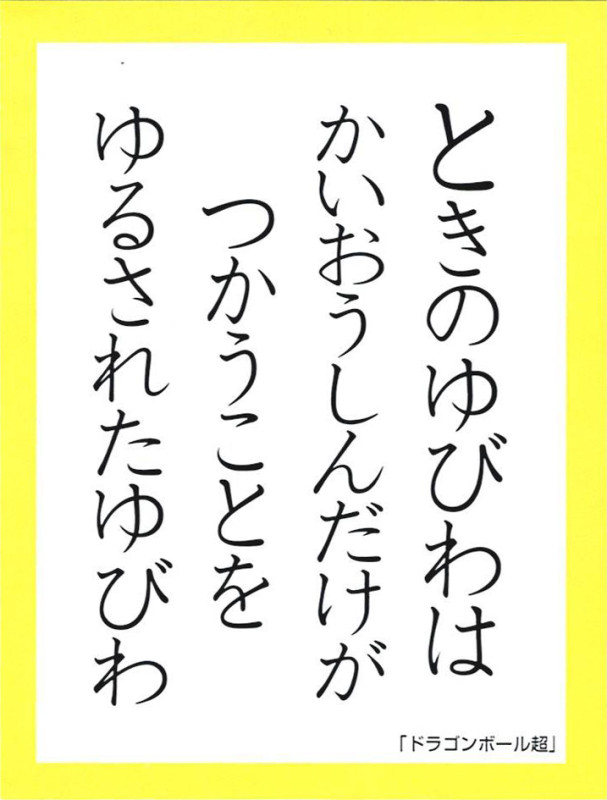 ときのゆびわは
かいおうしんだけが
つかうことを
ゆるされたゆびわ
「ドラゴンボール超」